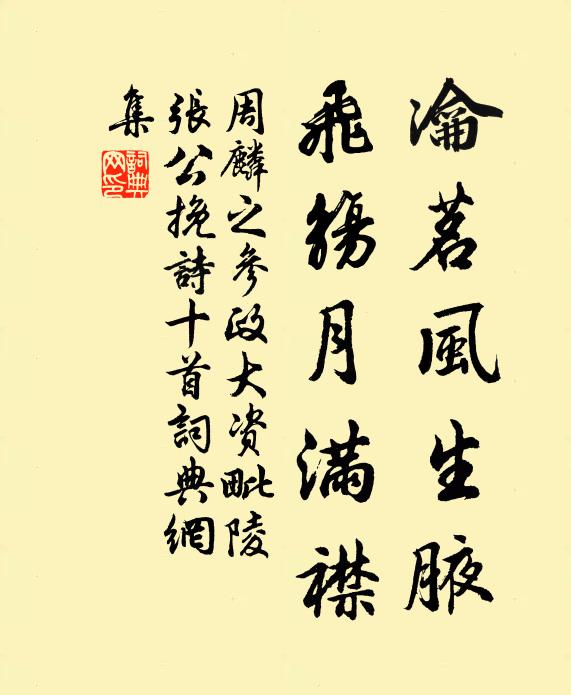 瀹茗風生腋
飛觴月滿襟
周麟之參政大資毗陵
張公挽詩十首詞典網
集
詞典網印